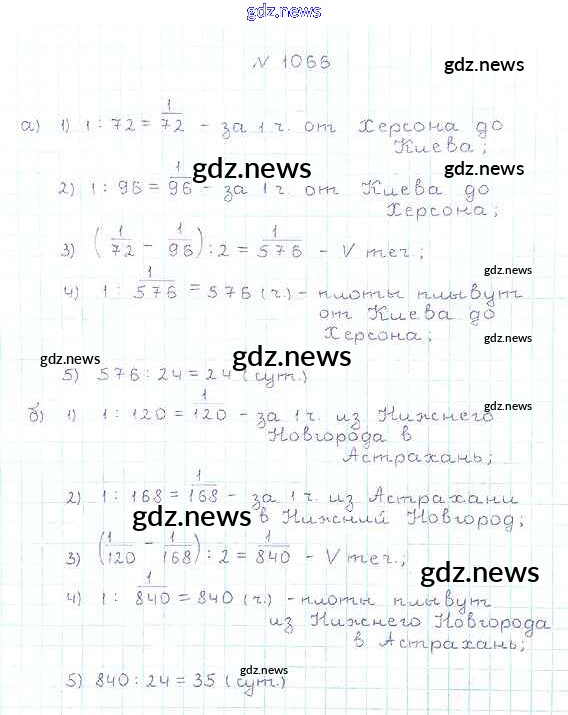 gdz.news
№ 1066
gdz.news
а) 1) 1 : 72 = 1/72 - за 1 ч. от Херсона до
Киева;
gdz.news
gdz.news
2) 1 : 96 = 1/96 - за 1 ч. от Киева до
Херсона;
3) (1/72 - 1/96) : 2 = 1/576 - V теч.;
gdz.news
4) 1 : 1/576 = 576 (ч.) - плоты плывут
от Киева до
Херсона;
gdz.news
gdz.news
gdz.news
5) 576 : 24 = 24 (сут.)
gdz.news
б) 1) 1 : 120 = 1/120 - за 1 ч. из Нижнего
Новгорода в
Астрахань;
2) 1 : 168 = 1/168 - за 1 ч. из Астрахани
в Нижний Новгород;
gdz.news
3) (1/120 - 1/168) : 2 = 1/840 - V теч.;
gdz.news
4) 1 : 1/840 = 840 (ч.) - плоты плывут
из Нижнего Новгорода
в Астрахань;
gdz.news
5) 840 : 24 = 35 (сут.)